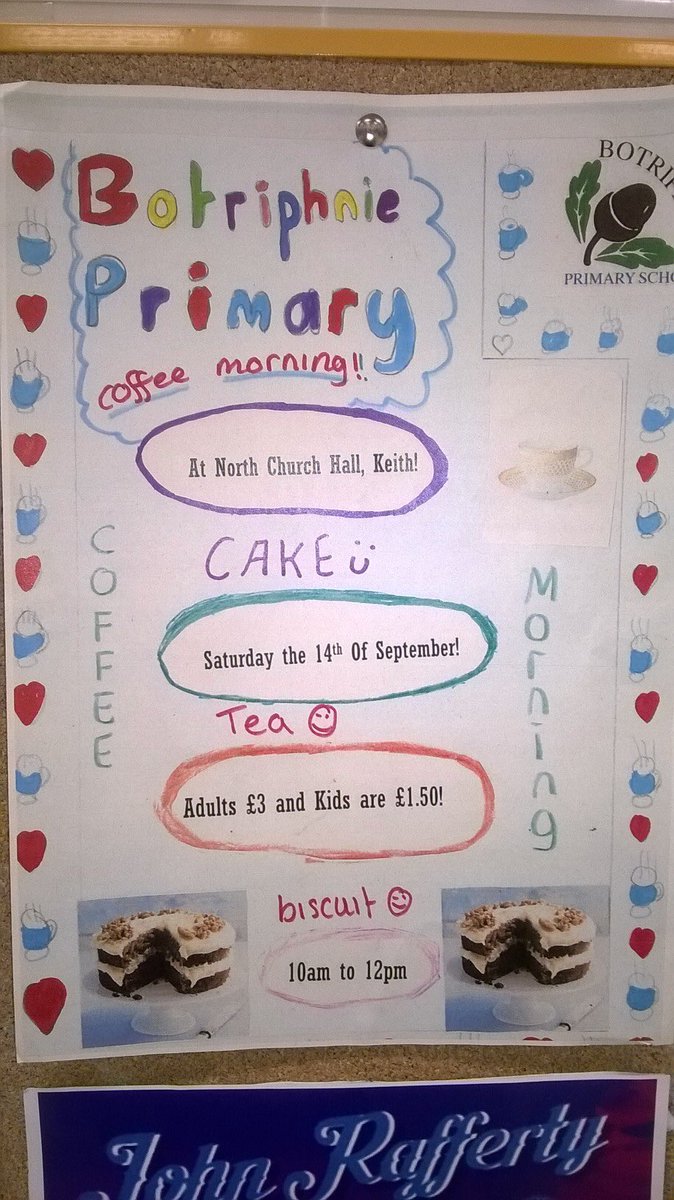 Botriphnie
Primary
coffee morning!!
PRIMARY
At North Church Hall, Keith!
CAKE
COFFEE
Morning
Saturday the 14th Of September!
Tea
Adults £3 and Kids are £1.50!
biscuit
10am to 12pm
John Rafferty